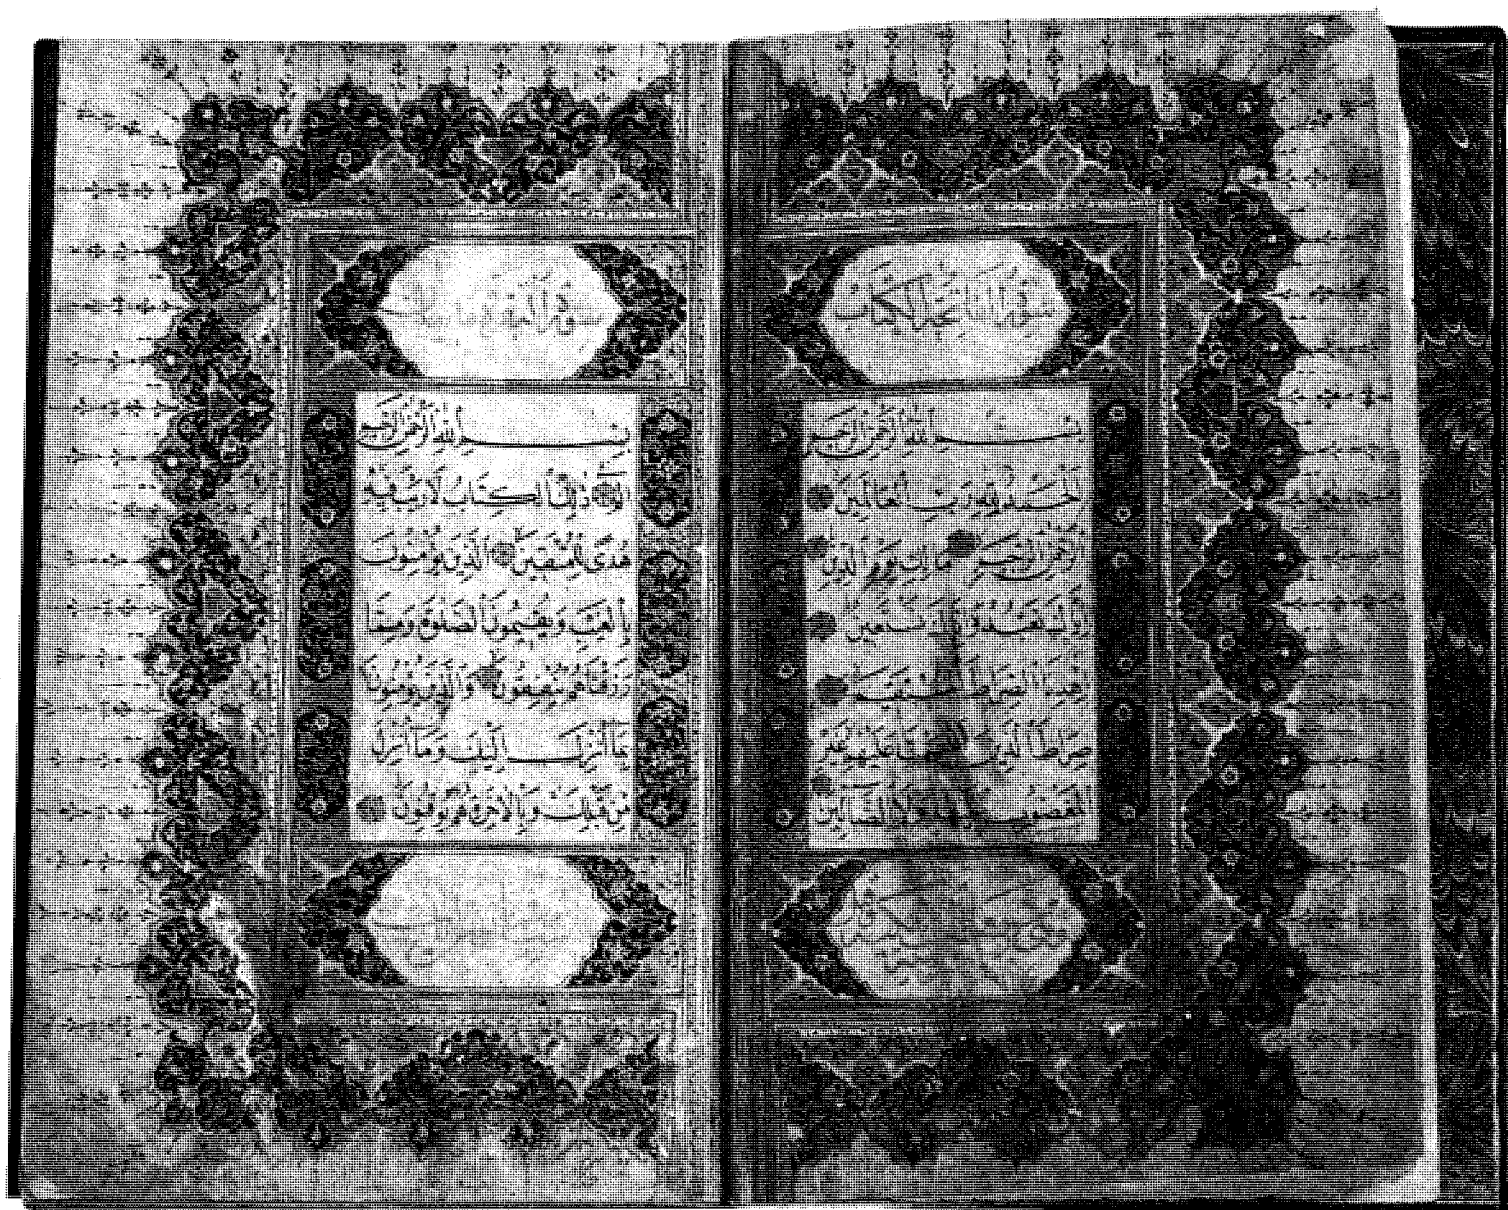 سورة فاتحة الكتاب
بِسْمِ اللَّهِ الرَّحْمَٰنِ الرَّحِيمِ
الْحَمْدُ لِلَّهِ رَبِّ الْعَالَمِينَ
الرَّحْمَٰنِ الرَّحِيمِ مَالِكِ يَوْمِ الدِّينِ
إِيَّاكَ نَعْبُدُ وَإِيَّاكَ نَسْتَعِينُ
اهْدِنَا الصِّرَاطَ الْمُسْتَقِيمَ
صِرَاطَ الَّذِينَ أَنْعَمْتَ عَلَيْهِمْ غَيْرِ
الْمَغْضُوبِ عَلَيْهِمْ وَلَا الضَّالِّينَ
سورة البقرة
بِسْمِ اللَّهِ الرَّحْمَٰنِ الرَّحِيمِ
الم ذَٰلِكَ الْكِتَابُ لَا رَيْبَ فِيهِ
هُدًى لِلْمُتَّقِينَ الَّذِينَ يُؤْمِنُونَ
بِالْغَيْبِ وَيُقِيمُونَ الصَّلَوٰةَ وَمِمَّا
رَزَقْنَاهُمْ يُنْفِقُونَ وَالَّذِينَ يُؤْمِنُونَ
بِمَا أُنْزِلَ إِلَيْكَ وَمَا أُنْزِلَ
مِنْ قَبْلِكَ وَبِالْآخِرَةِ هُمْ يُوقِنُونَ